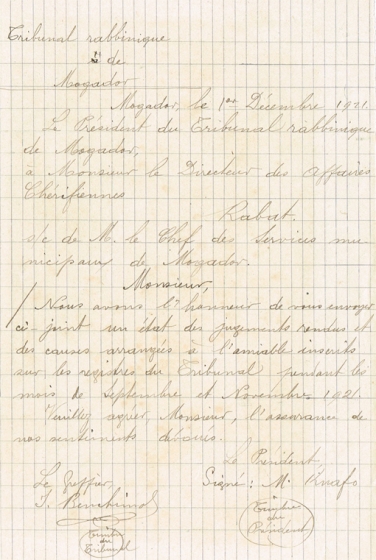 Tribunal rabbinique
de
Mogador
Mogador, le 1er Décembre 1921.
Le Président du Tribunal rabbinique
de Mogador,
à Monsieur le Directeur des Affaires
Chérifiennes
Rabat.
s/c de M. le Chef des Services mu-
nicipaux de Mogador.
Monsieur,
Nous avons l'honneur de vous envoyer
ci-joint un état des jugements rendus et
des causes arrangées à l'amiable inscrits
sur les registres du Tribunal pendant les
mois de Septembre et Novembre 1921.
Veuillez agréer, Monsieur, l'assurance de
nos sentiments dévoués.
Le Président,
Le Greffier, Signé: M. Knafo
Timbre
du
Président
Timbre
du
Tribunal